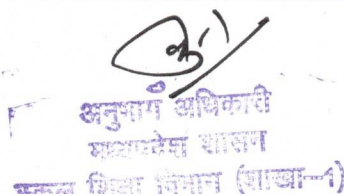 अनुभाग अधिकारी
मध्यप्रदेश शासन
स्कूल शिक्षा विभाग (शाखा-1)